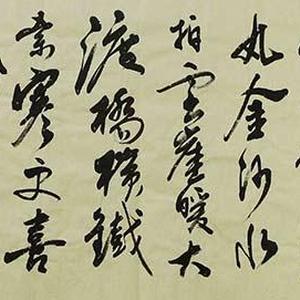 丸金沙水
拍雲崖暖大
渡橋横鐵
索寒更喜